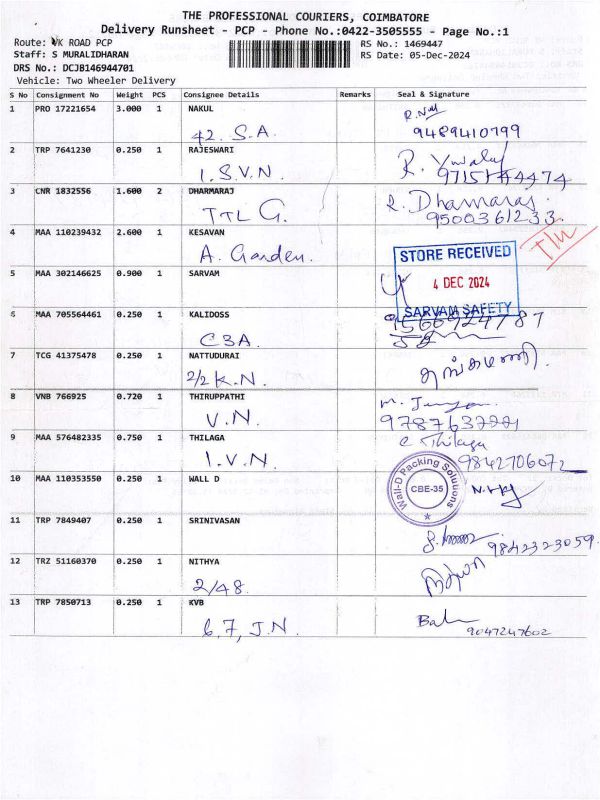 THE PROFESSIONAL COURIERS, COIMBATORE
Delivery Runsheet - PCP - Phone No.:0422-3505555 - Page No.:1
Route: VK ROAD PCP RS No.: 1469447
Staff: S MURALIDHARAN RS Date: 05-Dec-2024
DRS No.: DCJB146944701
Vehicle: Two Wheeler Delivery
S No Consignment No Weight PCS Consignee Details Remarks Seal & Signature
1 PRO 17221654 3.000 1 NAKUL
42. S.A. 9489410799
2 TRP 7641230 0.250 1 RAJESWARI
1. S.V.N. R.
3 CNR 1832556 1.600 2 DHARMARAJ R. Dhamaraj.
TTL G. 9500361233
4 MAA 110239432 2.600 1 KESAVAN
A. Garden.
STORE RECEIVED
5 MAA 302146625 0.900 1 SARVAM 4 DEC 2024
SARVAM SAFETY
6 MAA 705564461 0.250 1 KALIDOSS
C3A.
7 TCG 41375478 0.250 1 NATTUDURAI தங்கமணி.
2/2 K.N.
8 VNB 766925 0.720 1 THIRUPPATHI
V.N.
9 MAA 576482335 0.750 1 THILAGA c Thilaga
1.V.N. 9842706072
10 MAA 110353550 0.250 1 WALL D
Wall-D Packing Solutions
CBE-35
11 TRP 7849407 0.250 1 SRINIVASAN
9842323059
12 TRZ 51160370 0.250 1 NITHYA நித்யா
2/48.
13 TRP 7850713 0.250 1 KVB
6,7, J.N. 9047247602